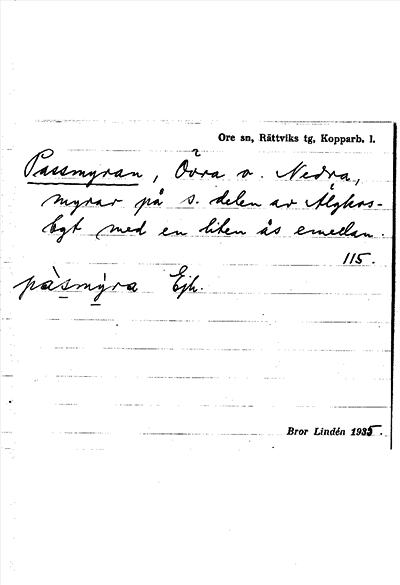 Ore sn, Rättviks tg, Kopparb. l.
Passmyran, Övra o. Nedra,
myrar på s. delen av Älgkos-
bgt med en liten ås emellan.
115.
pàsmýra Ejh.
Bror Lindén 1935.